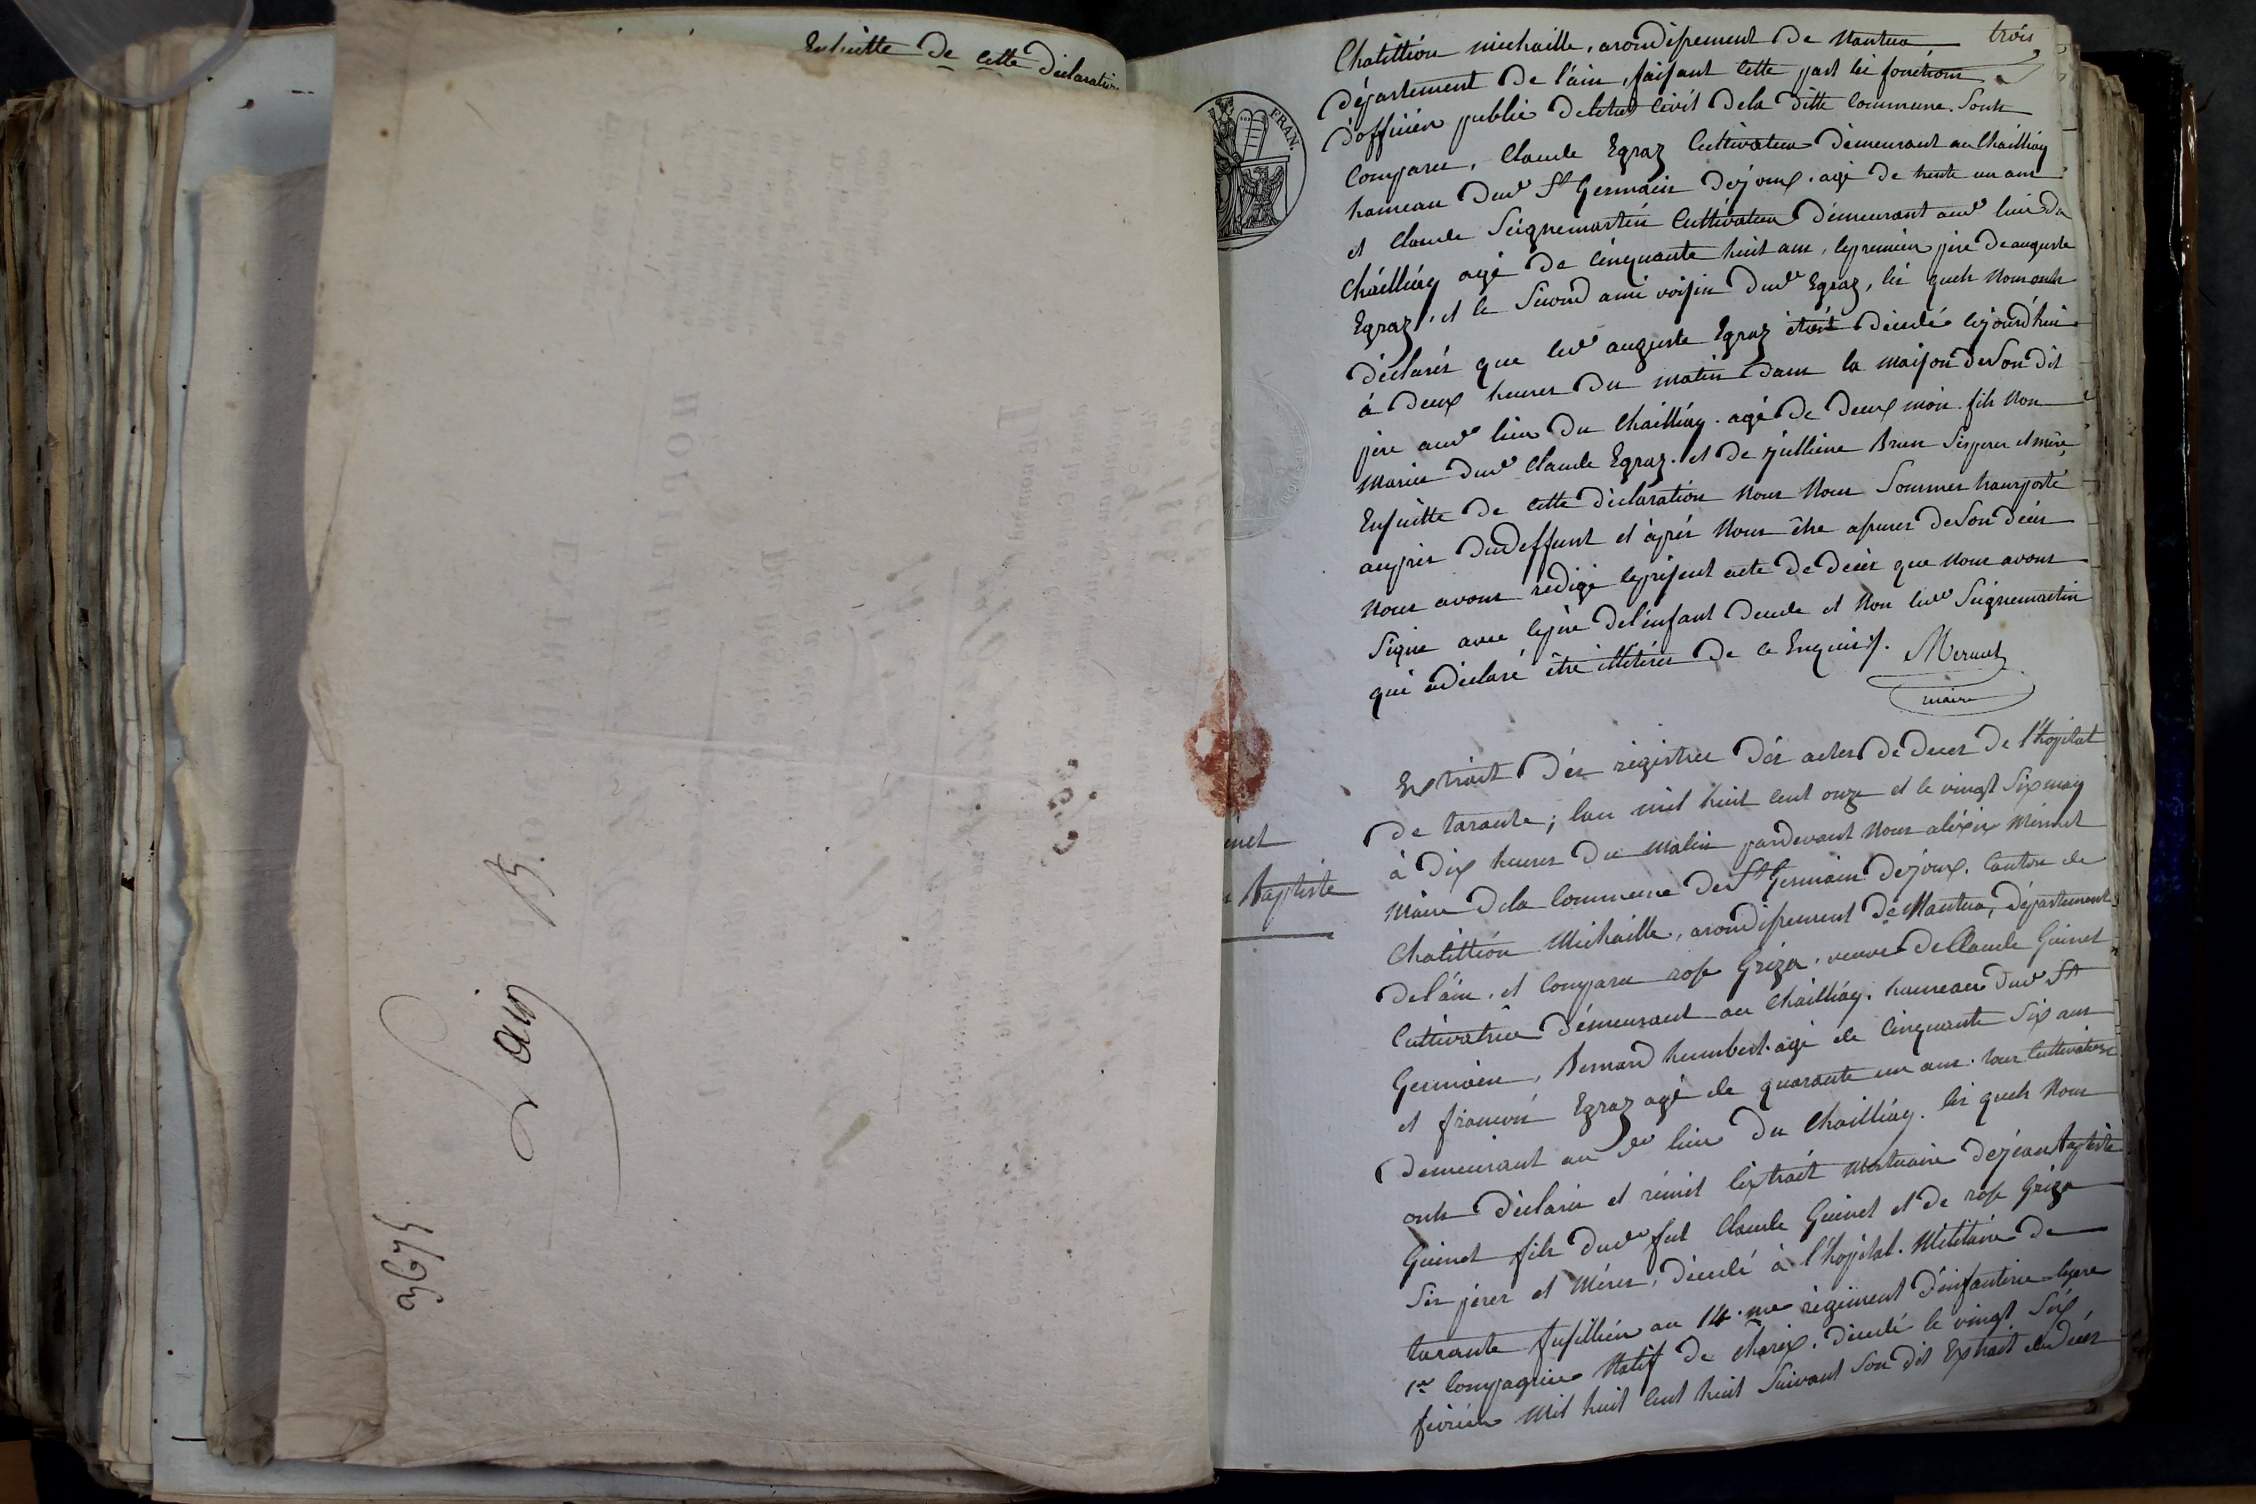 Ensuitte de cette déclaration
Lain B.
3675
FRAN.
inet
n Baptiste
trois
Chatillion michaille, arondissement de Nantua
département de l'ain, faisant cette part les fonctions
d'officier public de letat civil dela ditte commune. Sont
comparu, Claude Egraz Cultivateur demeurant au Chailliay
hameau dud St Germain dejoux, agé de trente un ans
et Claude Seignemartin Cultivateur demeurant aud lieu du
Chailliay agé de cinquante huit ans, lepremier père de auguste
Egraz, et le second ami voisin dud Egraz, les quels nous onts
déclarés que led auguste Egraz étoit décédé cejourd'hui
à deux heures du matin dans la maison deson dit
père aud lieu du Chailliay. agé de deux mois. fils non
Mariés dud Claude Egraz. et de jullienne Brun Sesperes et mère
Ensuitte de cette déclaration nous nous Sommes transporté
auprès dudeffunt et après nous être assurés deson décès
nous avons rédigé leprésent acte de décès que nous avons
Signé avec lepère del'enfant décédé et non led Seignemartin
qui adéclaré être illitérés de ce Enquis ./. Mermet
maire
Extrait des régistres dés actes de deces de l'hopital
de tarante; l'an mil huit cent onze et le vingt Six may
à dix heures du matin pardevant nous aléxis Mermet
Maire dela commune de St Germain dejoux. Canton de
Chatillion Michaille, arondissement de Nantua, département
del'ain. et comparu rose Griza. veuve de Claude Guinet
Cultivatrice demeurant au Chailliay. hameau dud St
Germain, Bernard humbert. agé de Cinquante Six ans
et françois Egraz agé de quarante un ans. tous Cultivateurs
demeurant au d lieu du Chailliay. les quels nous
onts déclarés et rémit l'extrait mortuaire dejean Baptiste
Guinet fils dud fut Claude Guinet et de rose Griza
Ses pères et Mères, décédé à l'hopital. Militaire de
tarante fusillier au 14.me régiment d'infanterie legere
1re Compagnie Natif de charix. décédé le vingt Six
février mil huit cent huit Suivant Son dit Extrait de decès